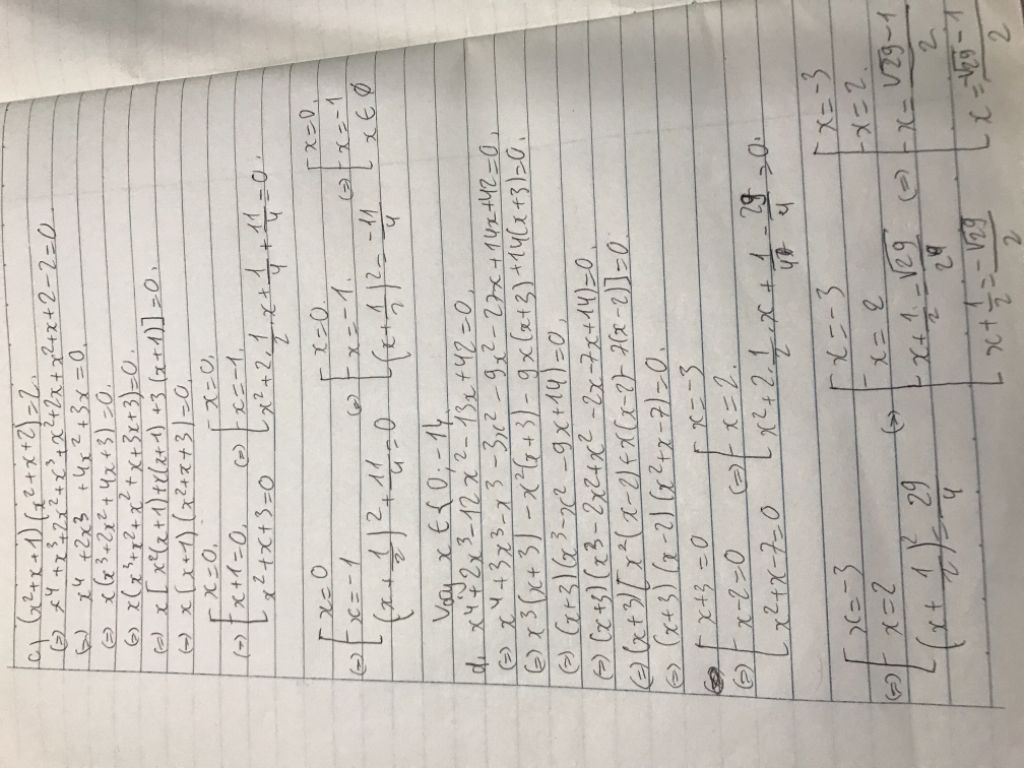 c) (x²+x+1)(x²+x+2)=2.
(=) x⁴+x³+2x²+x³+x²+2x+x²+x+2-2=0.
(=) x⁴+2x³+4x²+3x=0.
(=) x(x³+2x²+4x+3)=0.
(=) x(x³+x²+x²+x+3x+3)=0.
(=) x[x²(x+1)+x(x+1)+3(x+1)]=0.
(=) x(x+1)(x²+x+3)=0.
(=) [ x=0. (=) [ x=0.
x+1=0. x=-1.
x²+x+3=0 x²+2.1/2x+1/4+11/4=0.
(=) [ x=0 (=) [ x=0. (=) [ x=0.
x=-1 x=-1. x=-1
(x+1/2)²+11/4=0 (x+1/2)²=-11/4 x∈∅
Vậy x∈{0;-1}
d, x⁴+2x³-12x²-13x+42=0.
(=) x⁴+3x³-x³-3x²-9x²-27x+14x+42=0.
(=) x³(x+3)-x²(x+3)-9x(x+3)+14(x+3)=0.
(=) (x+3)(x³-x²-9x+14)=0.
(=) (x+3)(x³-2x²+x²-2x-7x+14)=0
(=) (x+3)[x²(x-2)+x(x-2)-7(x-2)]=0
(=) (x+3)(x-2)(x²+x-7)=0.
(=) [ x+3=0 (=) [ x=-3
x-2=0 x=2.
x²+x-7=0 x²+2.1/2.x+1/4-29/4=0.
(=) [ x=-3 (=) [ x=-3 (=) [ x=-3
x=2 x=2 x=2.
(x+1/2)²=29/4 x+1/2=√29/2 x=√29-1/2
x+1/2=-√29/2 x=-√29-1/2